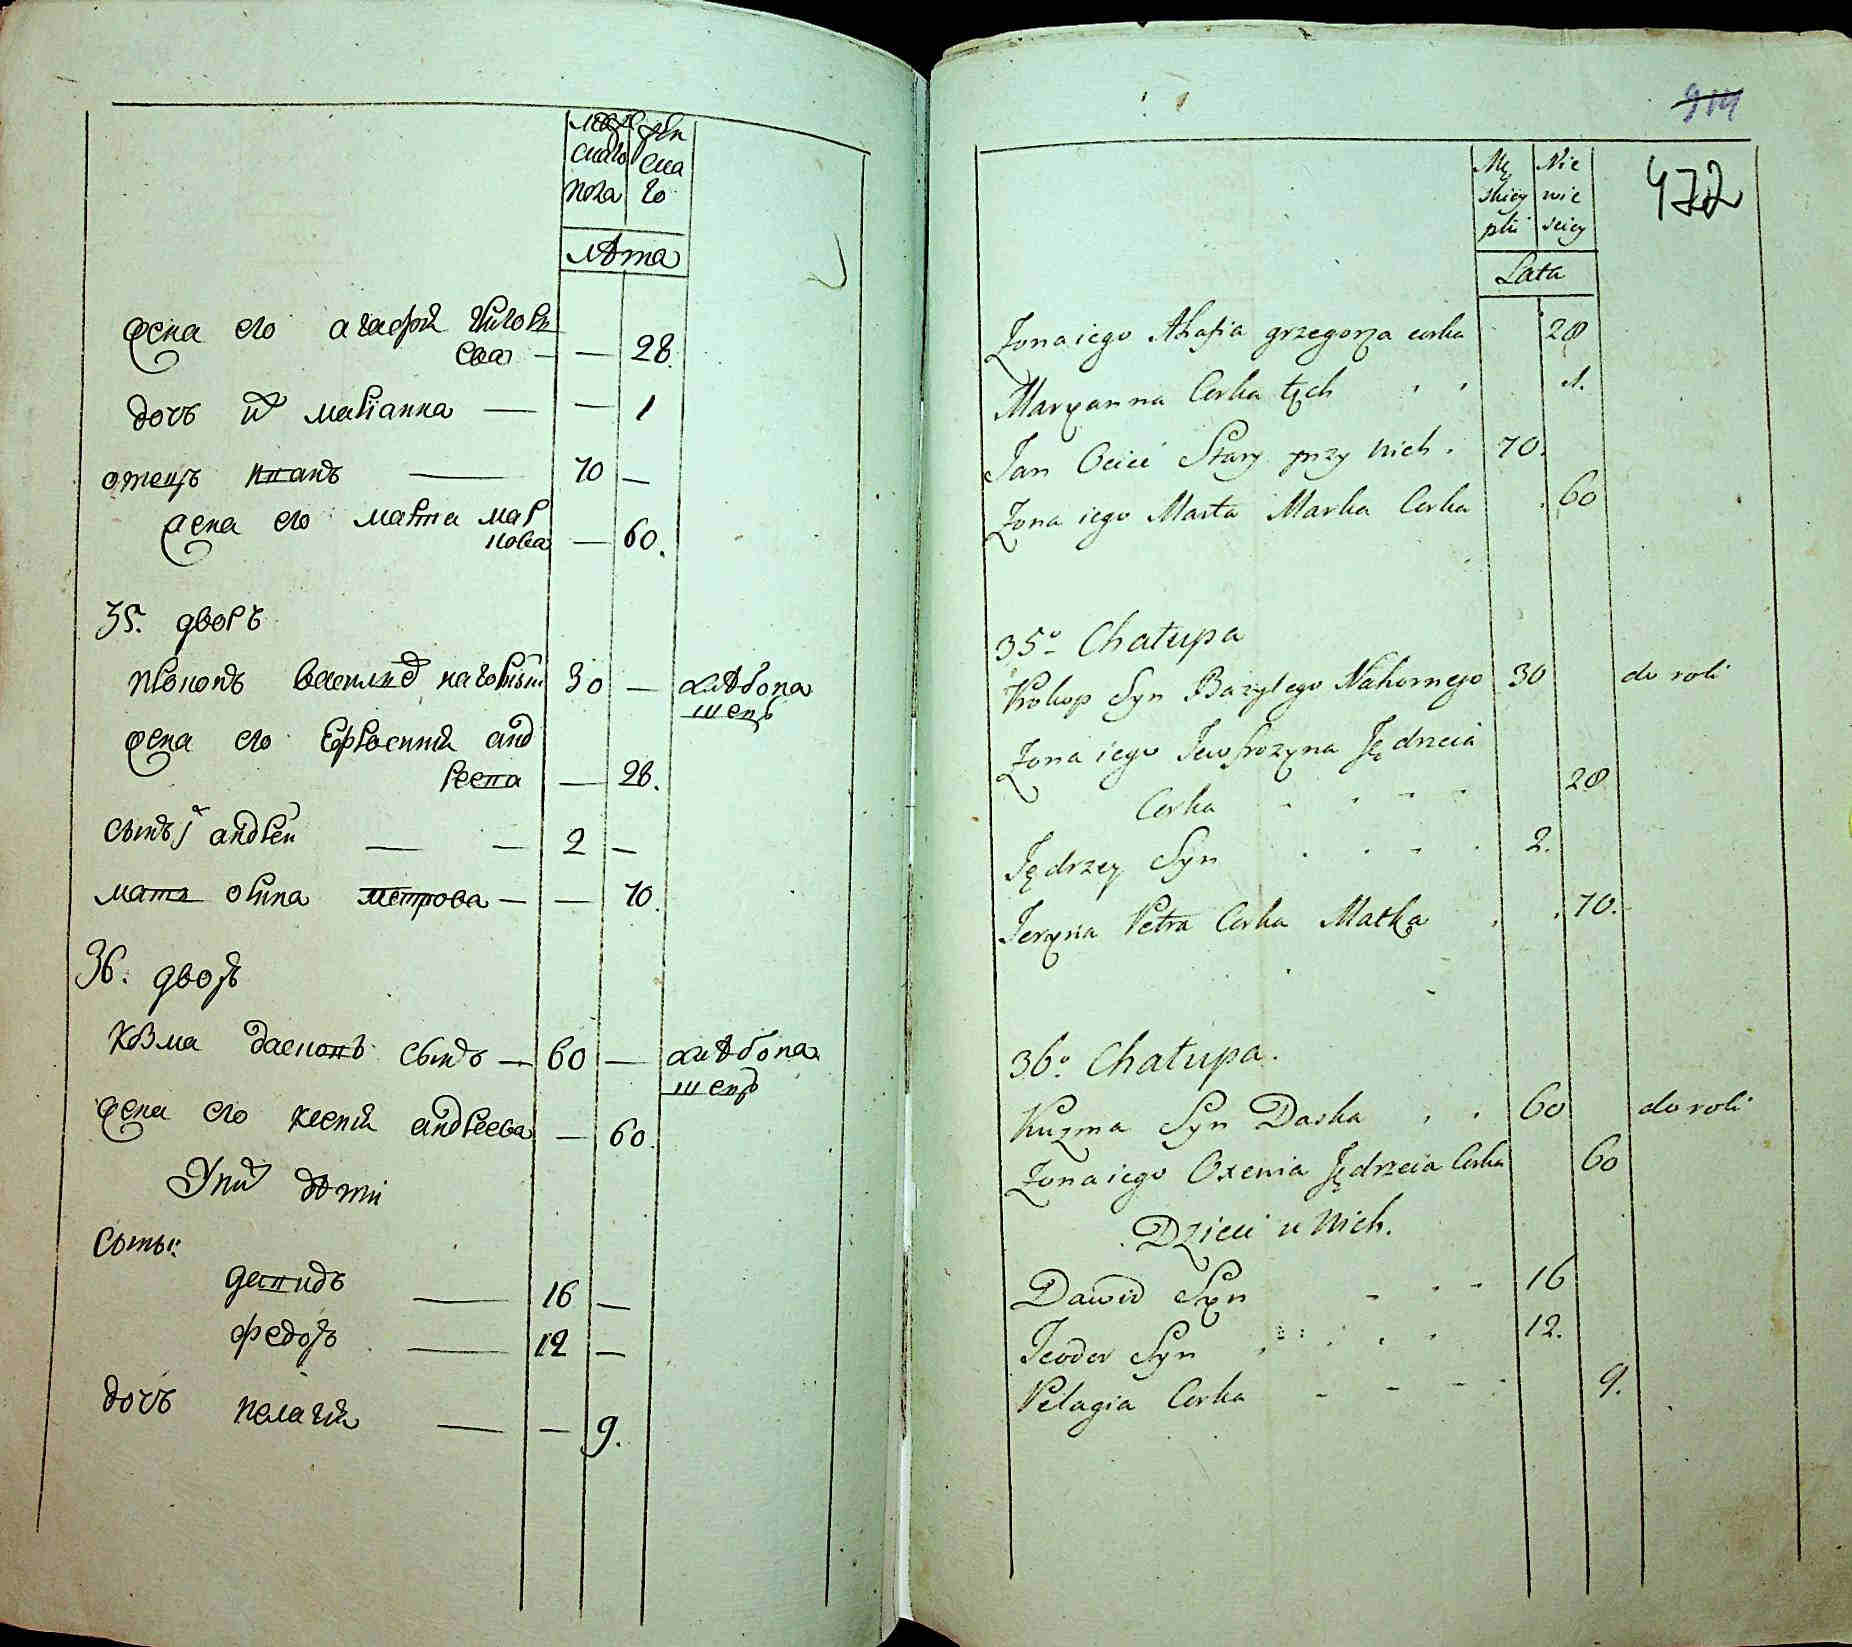 мужеска пола
женскаго
Лѣта
жена его агафия григорьева — — 28.
дочь их марианна — — 1
отецъ иванъ — 70 —
жена его марта маркова — 60.
35. дворъ
прокопъ василиев нагорный 30 — хлѣбопашецъ
жена его Ефросиния андреева — 28.
сынъ андрей — — 2 —
мать орина петрова — — 70.
36. дворъ
козма даснопъ сынъ — 60 — хлѣбопашецъ
жена его ксения андреева — 60.
У них дѣти
Сыны:
демидъ — 16 —
федоръ — 12 —
дочь пелагия — — 9.
914
472
Mę
skiey
płci
Nie
wie
sciey
Lata
Zona iego Ahafia grzegorza corka 28
Maryanna Corka tych 1.
Jan Ociec Stary przy nich. 70.
Zona iego Marta Marka Corka 60
35o Chałupa
Prokop Syn Bazylego Nahornego 30 do roli
Zona iego Jewfrozyna Jędrzeia
Corka 28
Jędrzey Syn 2.
Jeryna Petra Corka Matka 70.
36o Chałupa.
Kuzma Syn Daska 60 do roli
Zona iego Oxenia Jędrzeia Corka 60
Dzieci u nich.
Dawid Syn 16
Teodor Syn 12.
Pelagia Corka 9.